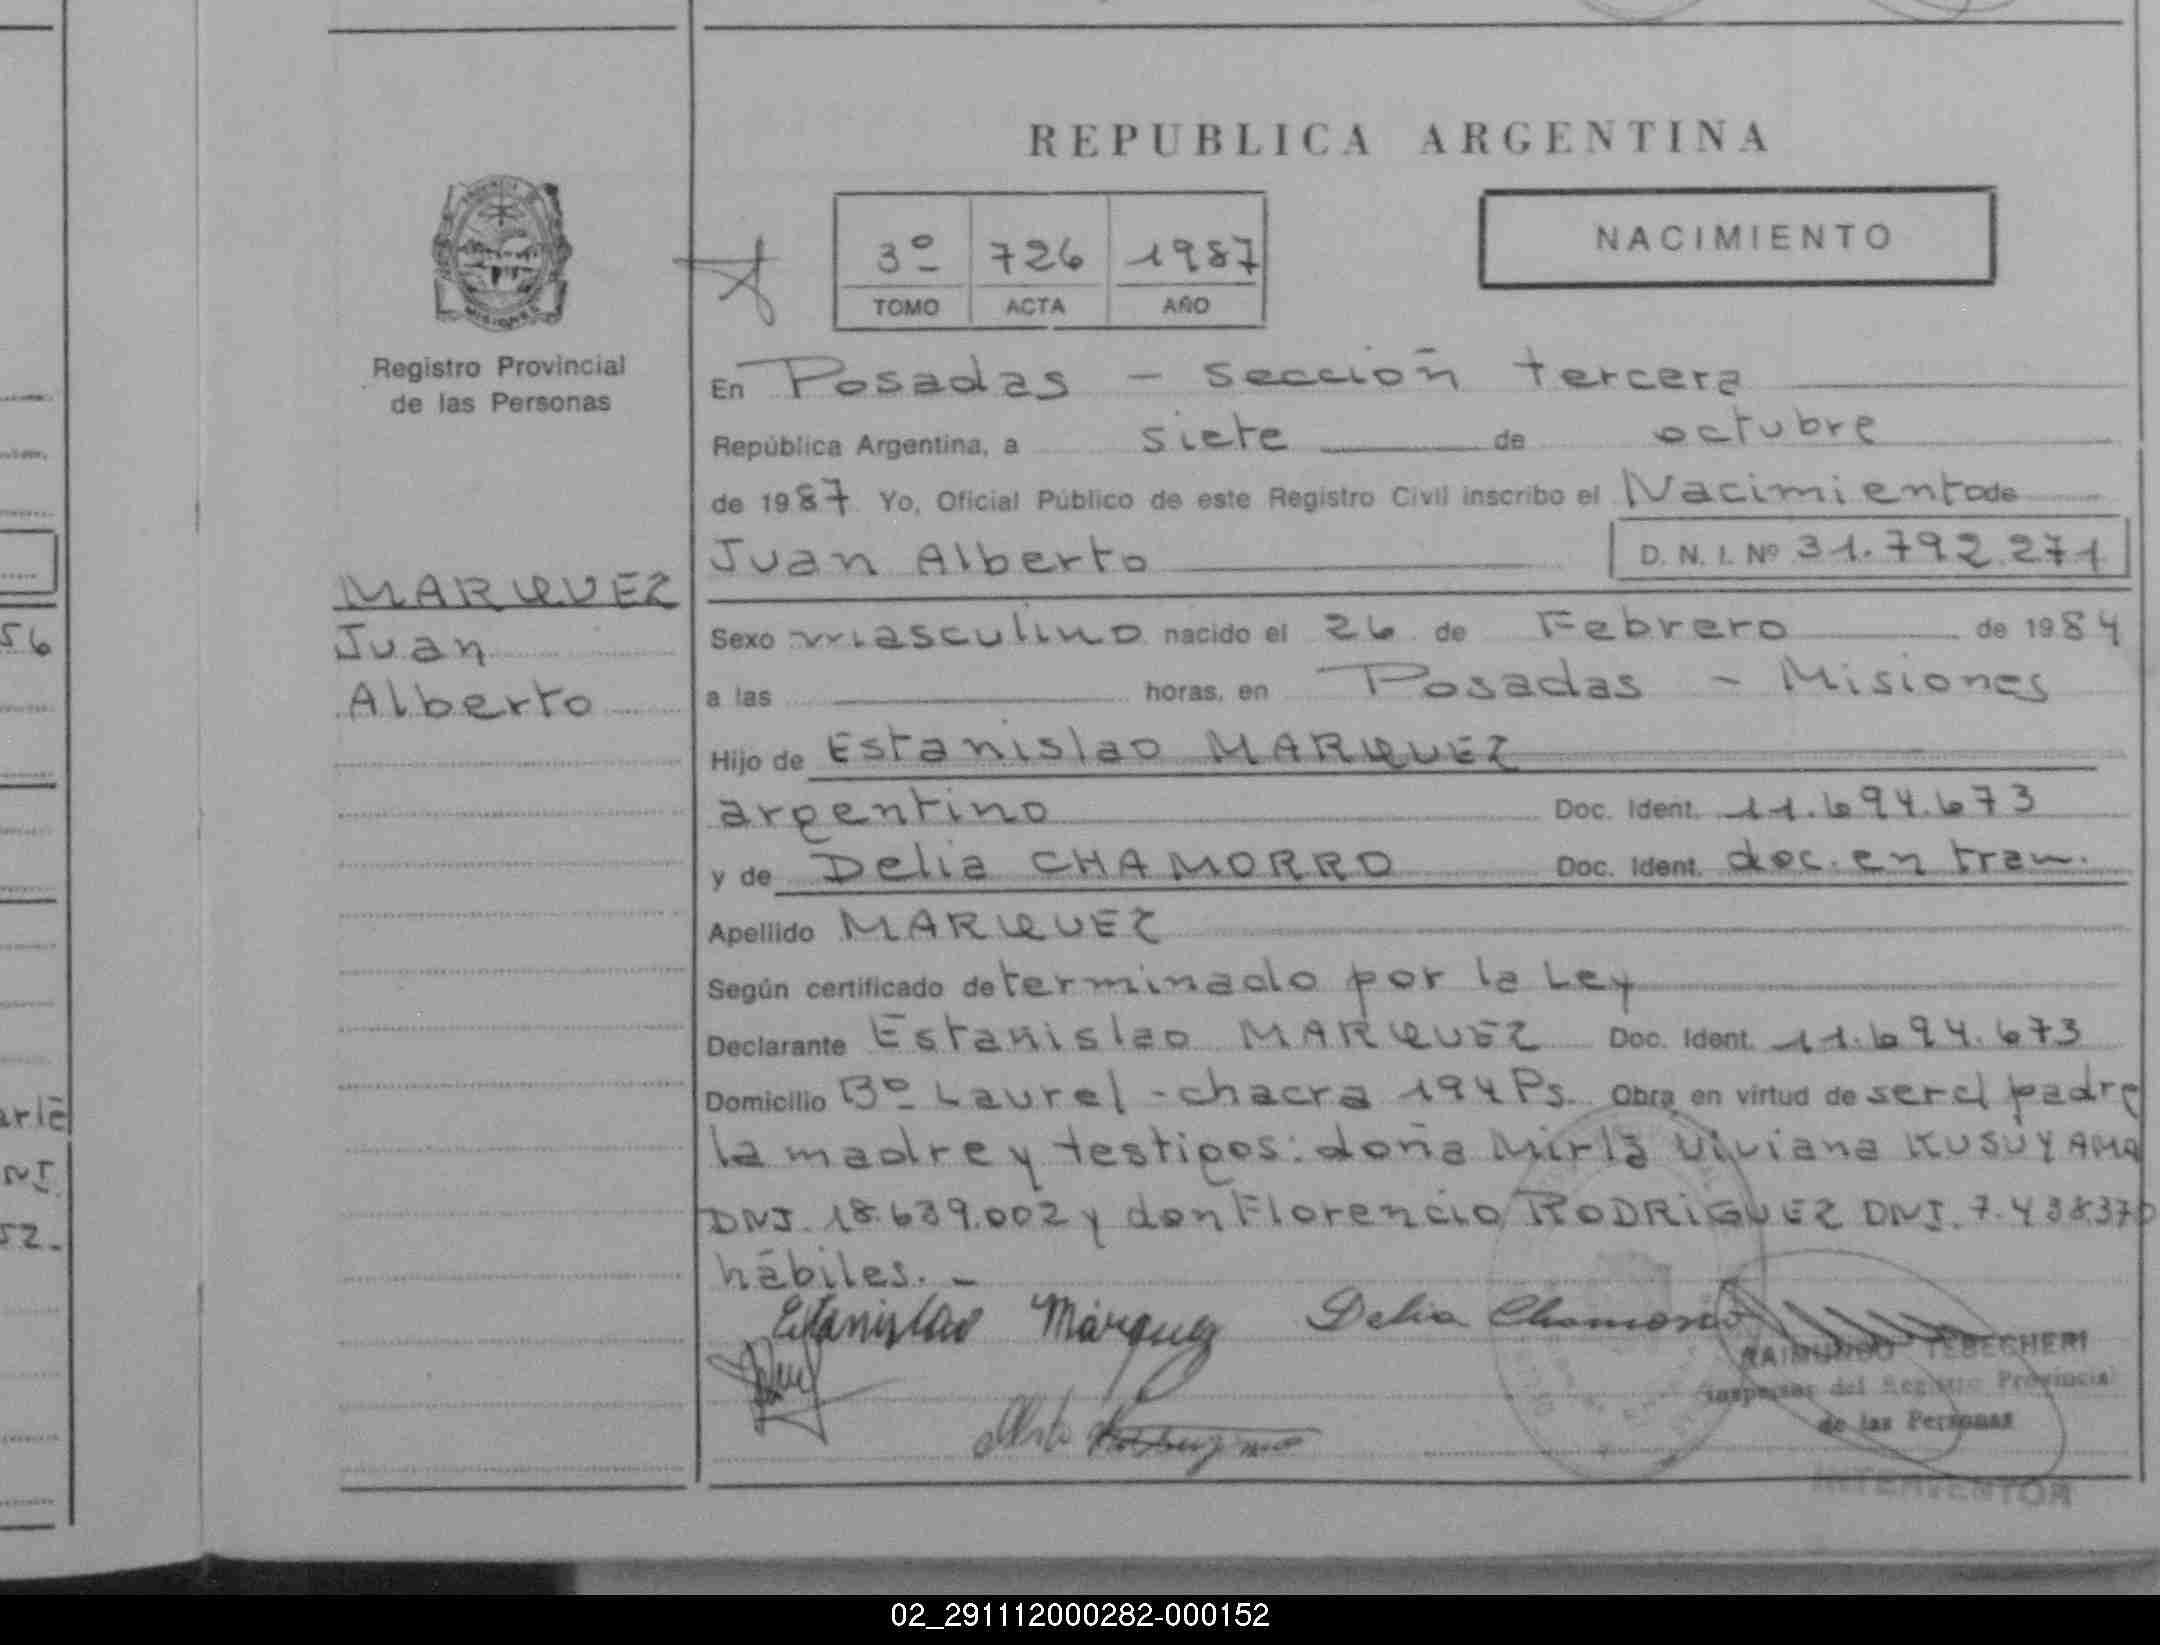 REPUBLICA ARGENTINA
3º 726 1987
TOMO ACTA AÑO
NACIMIENTO
MISIONES
Registro Provincial
de las Personas
MARQUEZ
Juan
Alberto
En Posadas - sección tercera
República Argentina, a siete de octubre
de 1987 Yo, Oficial Público de este Registro Civil inscribo el Nacimiento de
Juan Alberto D. N. I. Nº 31.792.271
Sexo masculino nacido el 26 de Febrero de 1984
a las horas, en Posadas - Misiones
Hijo de Estanislao MARQUEZ
argentino Doc. Ident. 11.694.673
y de Delia CHAMORRO Doc. Ident. doc. en tram.
Apellido MARQUEZ
Según certificado determinado por la Ley
Declarante Estanislao MARQUEZ Doc. Ident. 11.694.673
Domicilio Bº Laurel - chacra 194 Ps. Obra en virtud de ser el padre
la madre y testigos: doña Mirta Viviana KUSUYAMA
DNI. 18.639.002 y don Florencio RODRIGUEZ DNI. 7.438370
hábiles. -
Estanislao Márquez Delia Chamorro
RAIMUNDO TEBEGHERI
Inspector del Registro Provincial
de las Personas
INTERVENTOR
56
arlé
NI
52.
02_291112000282-000152